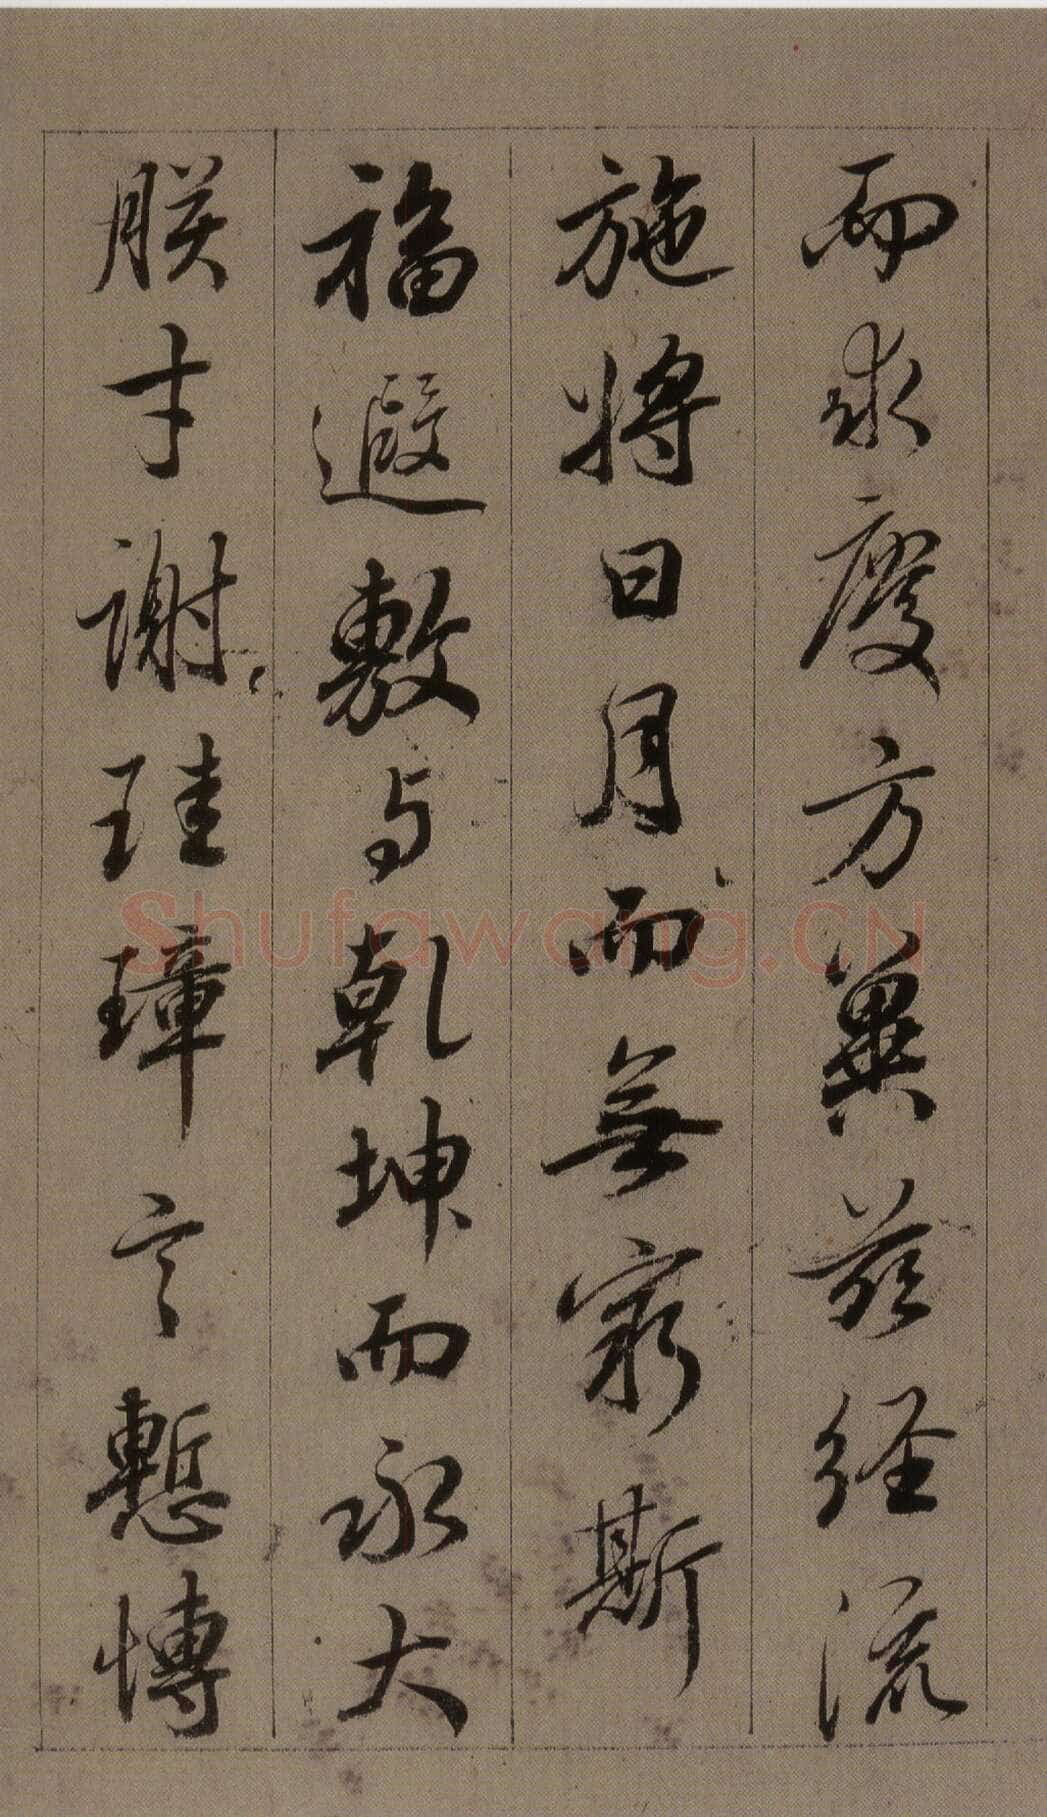 而求慶方冀兹経流
施將日月而無窮斯
福遐敷与乾坤而永大
朕才謝珪璋言慙博
Shufawang.CN